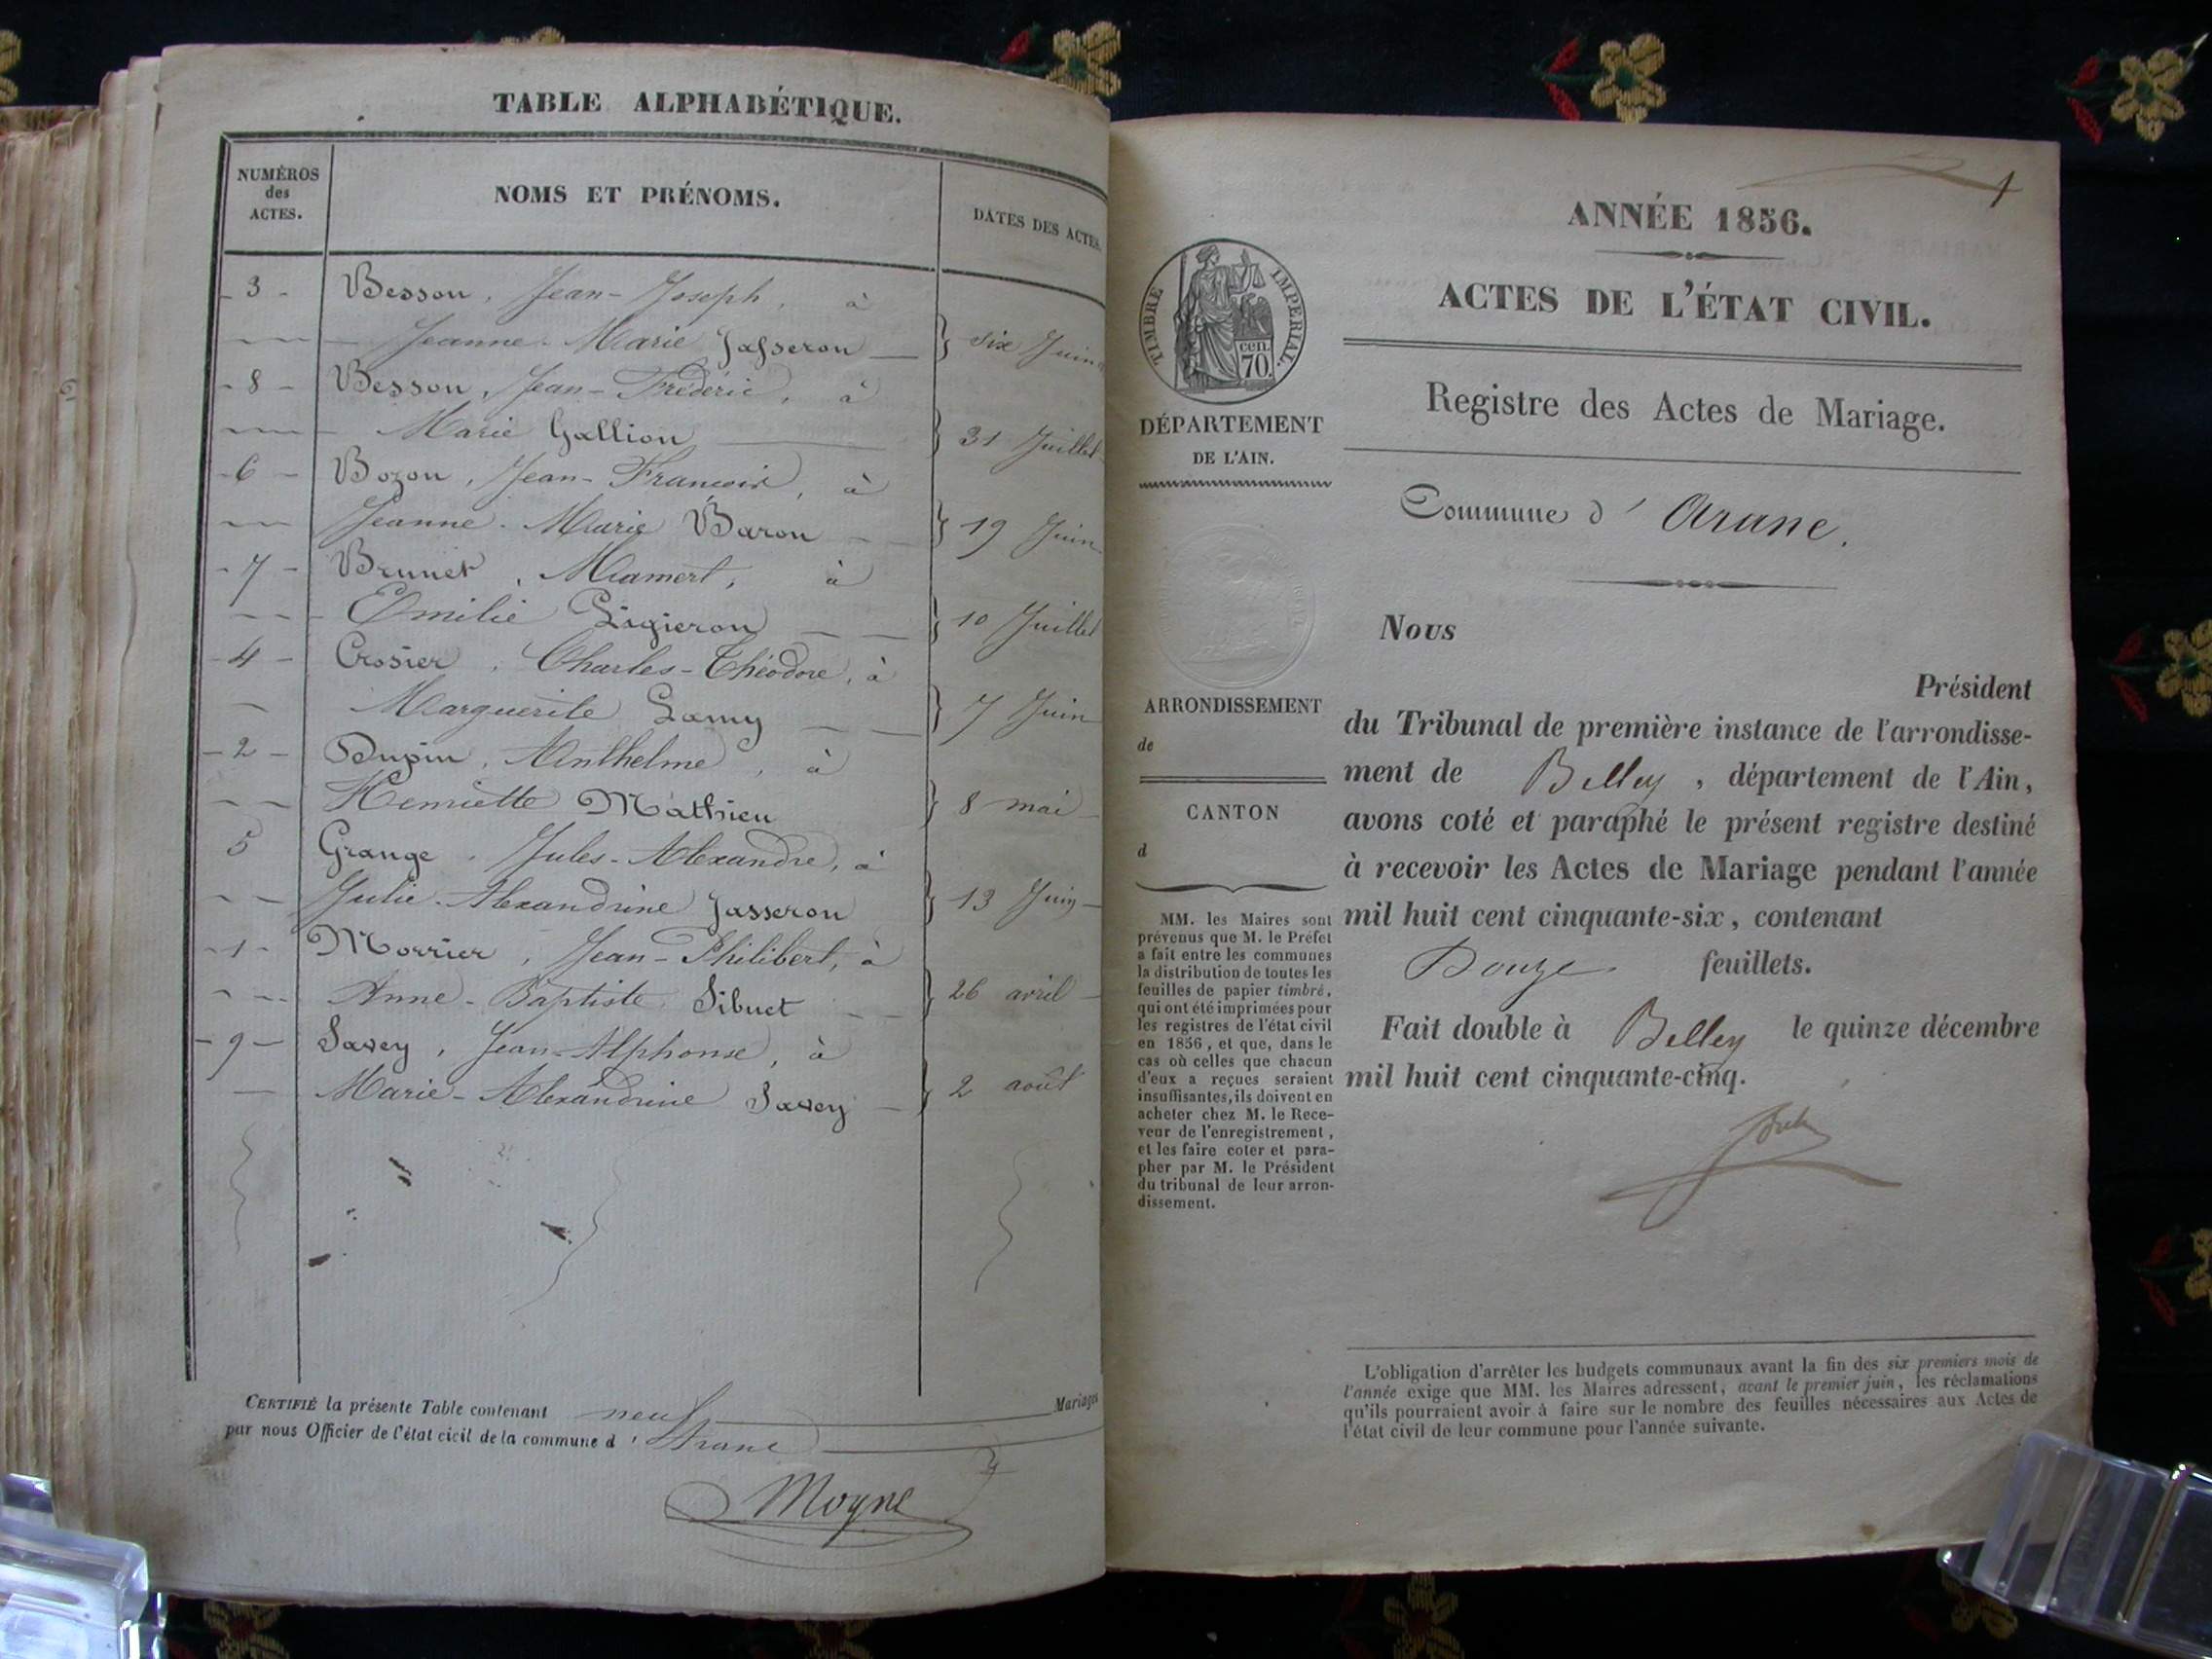 TABLE ALPHABÉTIQUE.
NUMÉROS
des
ACTES.
NOMS ET PRÉNOMS.
DATES DES ACTES.
- 3 - Besson, Jean-Joseph, à
Jeanne-Marie Jasseron } six Juin
- 8 - Besson, Jean-Fréderic, à
Marie Gallion } 31 Juillet
- 6 - Bozon, Jean-Francois, à
Jeanne-Marie Baron } 19 Juin
- 7 - Brunet, Mamert, à
Emilie Ligieron } 10 Juillet
- 4 - Crosier, Charles-Théodore, à
Marguerite Lamy } 7 Juin
- 2 - Dupin, Anthelme, à
Henriette Mathieu } 8 mai
5 Grange, Jules-Alexandre, à
Julie-Alexandrine Jasseron } 13 Juin
- 1 - Morrier, Jean-Philibert, à
Anne-Baptiste Sibuet } 26 avril
- 9 - Savey, Jean-Alphonse, à
Marie-Alexandrine Savey } 2 août
CERTIFIÉ la présente Table contenant neuf Mariages
par nous Officier de l'état cicil de la commune d'Arane
Moyne
1
ANNÉE 1856.
ACTES DE L'ÉTAT CIVIL.
Registre des Actes de Mariage.
TIMBRE IMPÉRIAL.
cen.
70.
DÉPARTEMENT
DE L'AIN.
ARRONDISSEMENT
de
CANTON
d
MM. les Maires sont
prévenus que M. le Préfet
a fait entre les communes
la distribution de toutes les
feuilles de papier timbré,
qui ont été imprimées pour
les registres de l'état civil
en 1856, et que, dans le
cas où celles que chacun
d'eux a reçues seraient
insuffisantes, ils doivent en
acheter chez M. le Rece-
veur de l'enregistrement,
et les faire coter et para-
pher par M. le Président
du tribunal de leur arron-
dissement.
Commune d'Arane.
Nous
Président
du Tribunal de première instance de l'arrondisse-
ment de Belley, département de l'Ain,
avons coté et paraphé le présent registre destiné
à recevoir les Actes de Mariage pendant l'année
mil huit cent cinquante-six, contenant
Douze feuillets.
Fait double à Belley le quinze décembre
mil huit cent cinquante-cinq.
L'obligation d'arrêter les budgets communaux avant la fin des six premiers mois de
l'année exige que MM. les Maires adressent, avant le premier juin, les réclamations
qu'ils pourraient avoir à faire sur le nombre des feuilles nécessaires aux Actes de
l'état civil de leur commune pour l'année suivante.